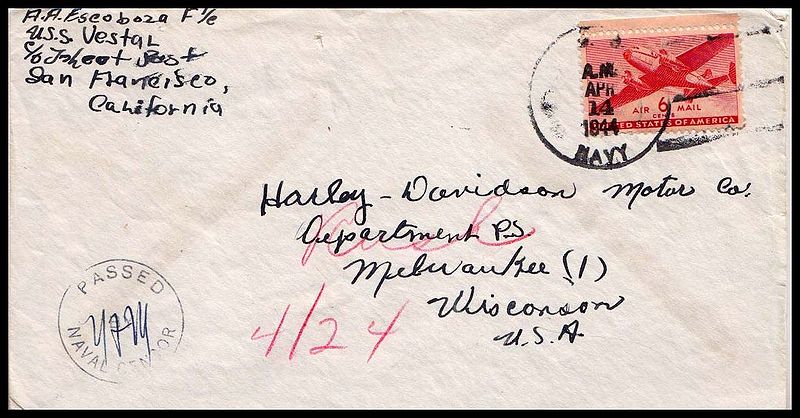 A.A. Escoboza F 1/c
U.S.S. Vestal
c/o Post
San Francisco,
California
A.M.
APR
14
1944
NAVY
AIR 6 MAIL
CENTS
UNITED STATES OF AMERICA
Harley-Davidson Motor Co.
Department P.S.
Rush
Melwaukee (1)
Wisconson
U.S.A
4/24
PASSED
NAVAL CENSOR